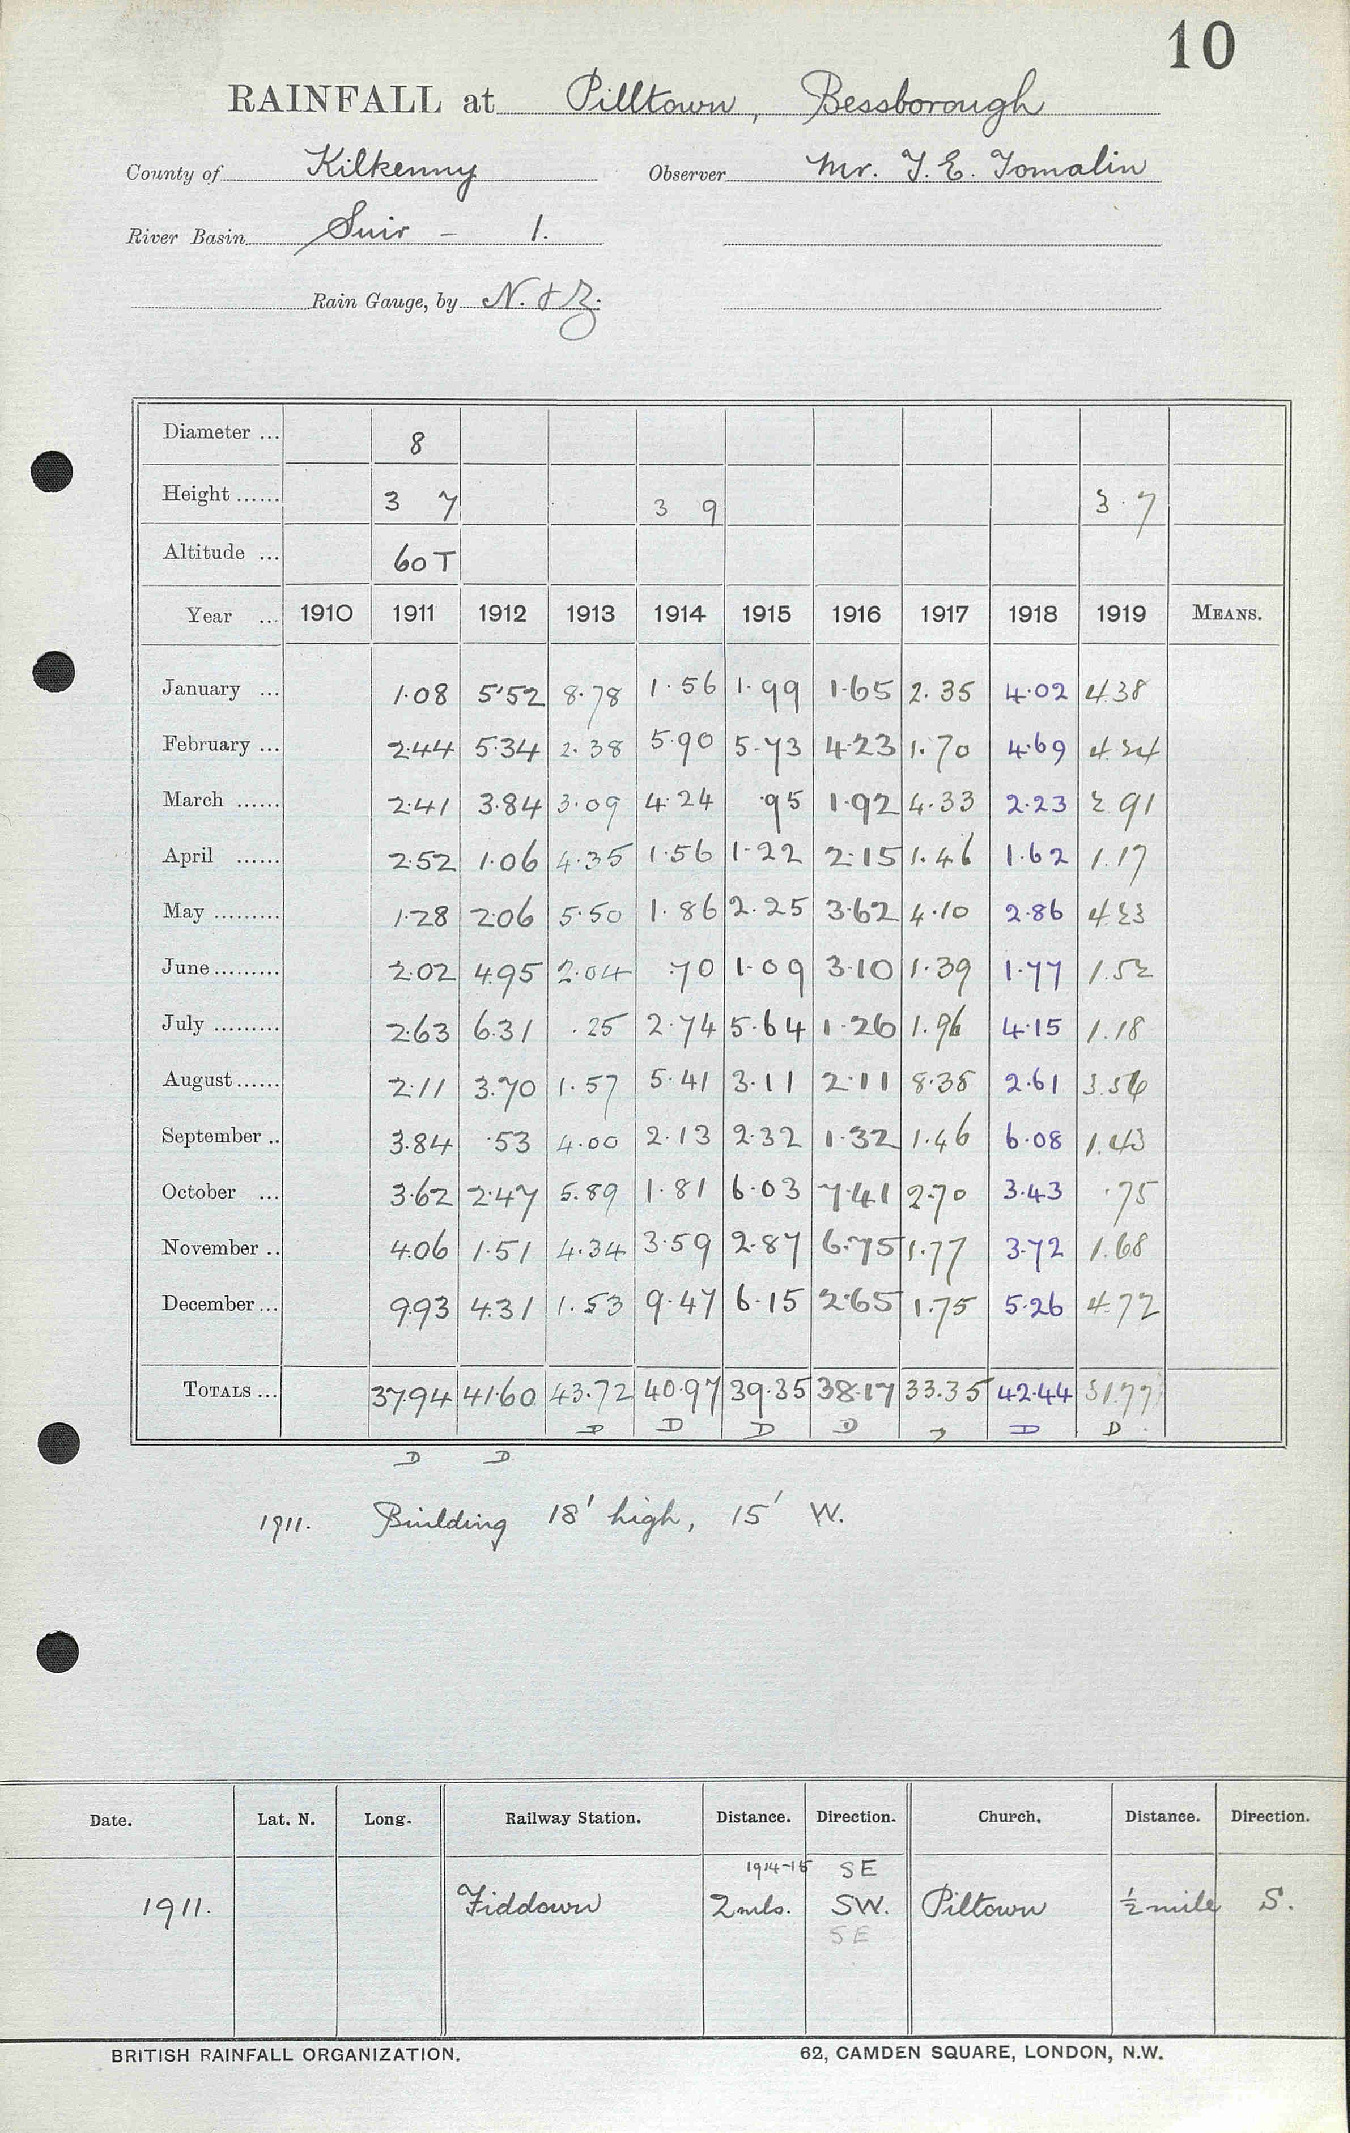 10
RAINFALL at Pilltown, Bessborough
County of Kilkenny Observer Mr. T. E. Tomalin
River Basin Suir - 1.
Rain Gauge, by N. & Z.
Diameter ... 8
Height ...... 3 7 3 9 3 . 7
Altitude ... 60 T
Year ... 1910 1911 1912 1913 1914 1915 1916 1917 1918 1919 MEANS.
January ... 1.08 5.52 8.78 1.56 1.99 1.65 2.35 4.02 4.38
February ... 2.44 5.34 2.38 5.90 5.73 4.23 1.70 4.69 4.24
March ...... 2.41 3.84 3.09 4.24 .95 1.92 4.33 2.23 2.91
April ...... 2.52 1.06 4.35 1.56 1.22 2.15 1.46 1.62 1.17
May ......... 1.28 2.06 5.50 1.86 2.25 3.62 4.10 2.86 4.23
June ......... 2.02 4.95 2.04 .70 1.09 3.10 1.39 1.77 1.52
July ......... 2.63 6.31 .25 2.74 5.64 1.26 1.96 4.15 1.18
August...... 2.11 3.70 1.57 5.41 3.11 2.11 8.38 2.61 3.56
September .. 3.84 .53 4.00 2.13 2.32 1.32 1.46 6.08 1.43
October ... 3.62 2.47 5.89 1.81 6.03 7.41 2.70 3.43 .75
November .. 4.06 1.51 4.34 3.59 2.87 6.75 1.77 3.72 1.68
December ... 9.93 4.31 1.53 9.47 6.15 2.65 1.75 5.26 4.72
TOTALS ... 37.94 41.60 43.72 40.97 39.35 38.17 33.35 42.44 31.77
D D D D D D D
D D
1911. Building 18' high, 15' W.
Date. Lat. N. Long. Railway Station. Distance. Direction. Church. Distance. Direction.
1914-15 SE
1911. Fiddown 2 mls. SW. Piltown ½ mile S.
SE
BRITISH RAINFALL ORGANIZATION. 62, CAMDEN SQUARE, LONDON, N.W.